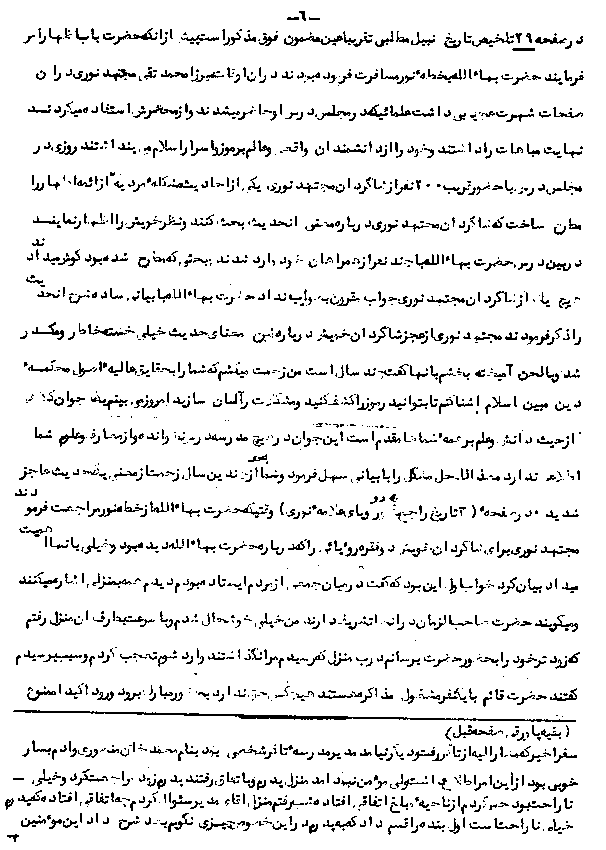 -٦-
در صفحه ٢٩ تلخیص تاریخ نبیل مطالبی تقریبا بهمین مضمون فوق مذکور است پیش از آنکه حضرت باب اظهار امر
فرمایند حضرت بهاءالله بخطه نور مسافرت فرموده بودند در آن اوقات میرزا محمد تقی مجتهد نوری در آن
صفحات شهرت عجیبی داشت علمائیکه در مجلس درس او حاضر میشدند و از محضرش استفاده میکردند
نهایت مباهات را داشتند و خود را از دانشمندان واقعی و عالم برموز و اسرار اسلام میپنداشتند روزی در
مجلس درس با حضور قریب ٢٠٠ نفر از شاگردان مجتهد نوری یکی از احادیث مشکله مرویه از ائمه اطهار را
مطرح ساخت که شاگردان مجتهد نوری درباره معنی آنحدیث بحث کنند و نظر خویش را اظهار نمایند
در بین درس حضرت بهاءالله با چند نفر از همراهان خود وارد شدند ببحثی که مطرح شده بود گوش میدادند
هیچ یک از شاگردان مجتهد نوری جواب مقرون بصواب نداد حضرت بهاءالله با بیانی ساده شرح آنحدیث
را ذکر فرمودند مجتهد نوری از عجز شاگردان خویش درباره تبیین معنای حدیث خیلی خسته خاطر و مکدر
شد و با لحن آمیخته بخشم بآنها گفت چند سال است من زحمت میکشم که شما را بحقایق عالیه اصول محکمه
دین مبین اسلام آشنا کنم تا بتوانید رموز را کشف کنید و مشکلات را آسان سازید امروز می بینم یک جوان
از حیث دانش و علم بر همه شما مقدم است این جوان در هیچ مدرسه درس نخوانده و از معارف و علوم شما
اطلاع ندارد معذالک حل مشکل را با بیانی سهل فرمود و شما از چندین سال زحمت از معنی یک حدیث عاجز
شدید. در صفحه (٣ تاریخ راجع به دو رویای علامه نوری) وقتیکه حضرت بهاءالله از خطه نور مراجعت فرمودند
مجتهد نوری برای شاگردان خویش دو فقره رویائی را که درباره حضرت بهاءالله دیده بود و خیلی بآنها اهمیت
میداد بیان کرد خواب اول این بود که گفت در میان جمعی از مردم ایستاده بودم دیدم همه بمنزلی اشاره میکنند
و میگویند حضرت صاحب الزمان در آنجا تشریف دارند من خیلی خوشحال شدم و با سرعت بطرف آن منزل رفتم
که زودتر خود را بحضور حضرت برسانم درب منزل که رسیدم مرا نگذاشتند وارد شوم تعجب کردم و سبب پرسیدم
گفتند حضرت قائم با یکنفر مشغول مذاکره هستند هیچکس حق ندارد بحضور مبارک برود ورود اکیدا ممنوع
(بقیه پاورقی صفحه قبل)
سفر اخیر که ما را لیه از تاکر رفتود مدیر مدرسه تاکر شخصی بود بنام محمد خان منصوری و آدم بسیار
خوبی بود از این امر اطلاع منزل پدرم و باتفاق رفتند پدرم زود مراجعت کرد و خیلی
ناراحت بود حس کردم از ناحیه باغ اتفاقی افتاده منزل آقای مدیر سئوال کردم چه اتفاقی افتاده که پدرم
خیلی ناراحت است اول بنده را قسم داد که به پدرم در این خصوص چیزی نگویم بعد شرح داد این مومنین